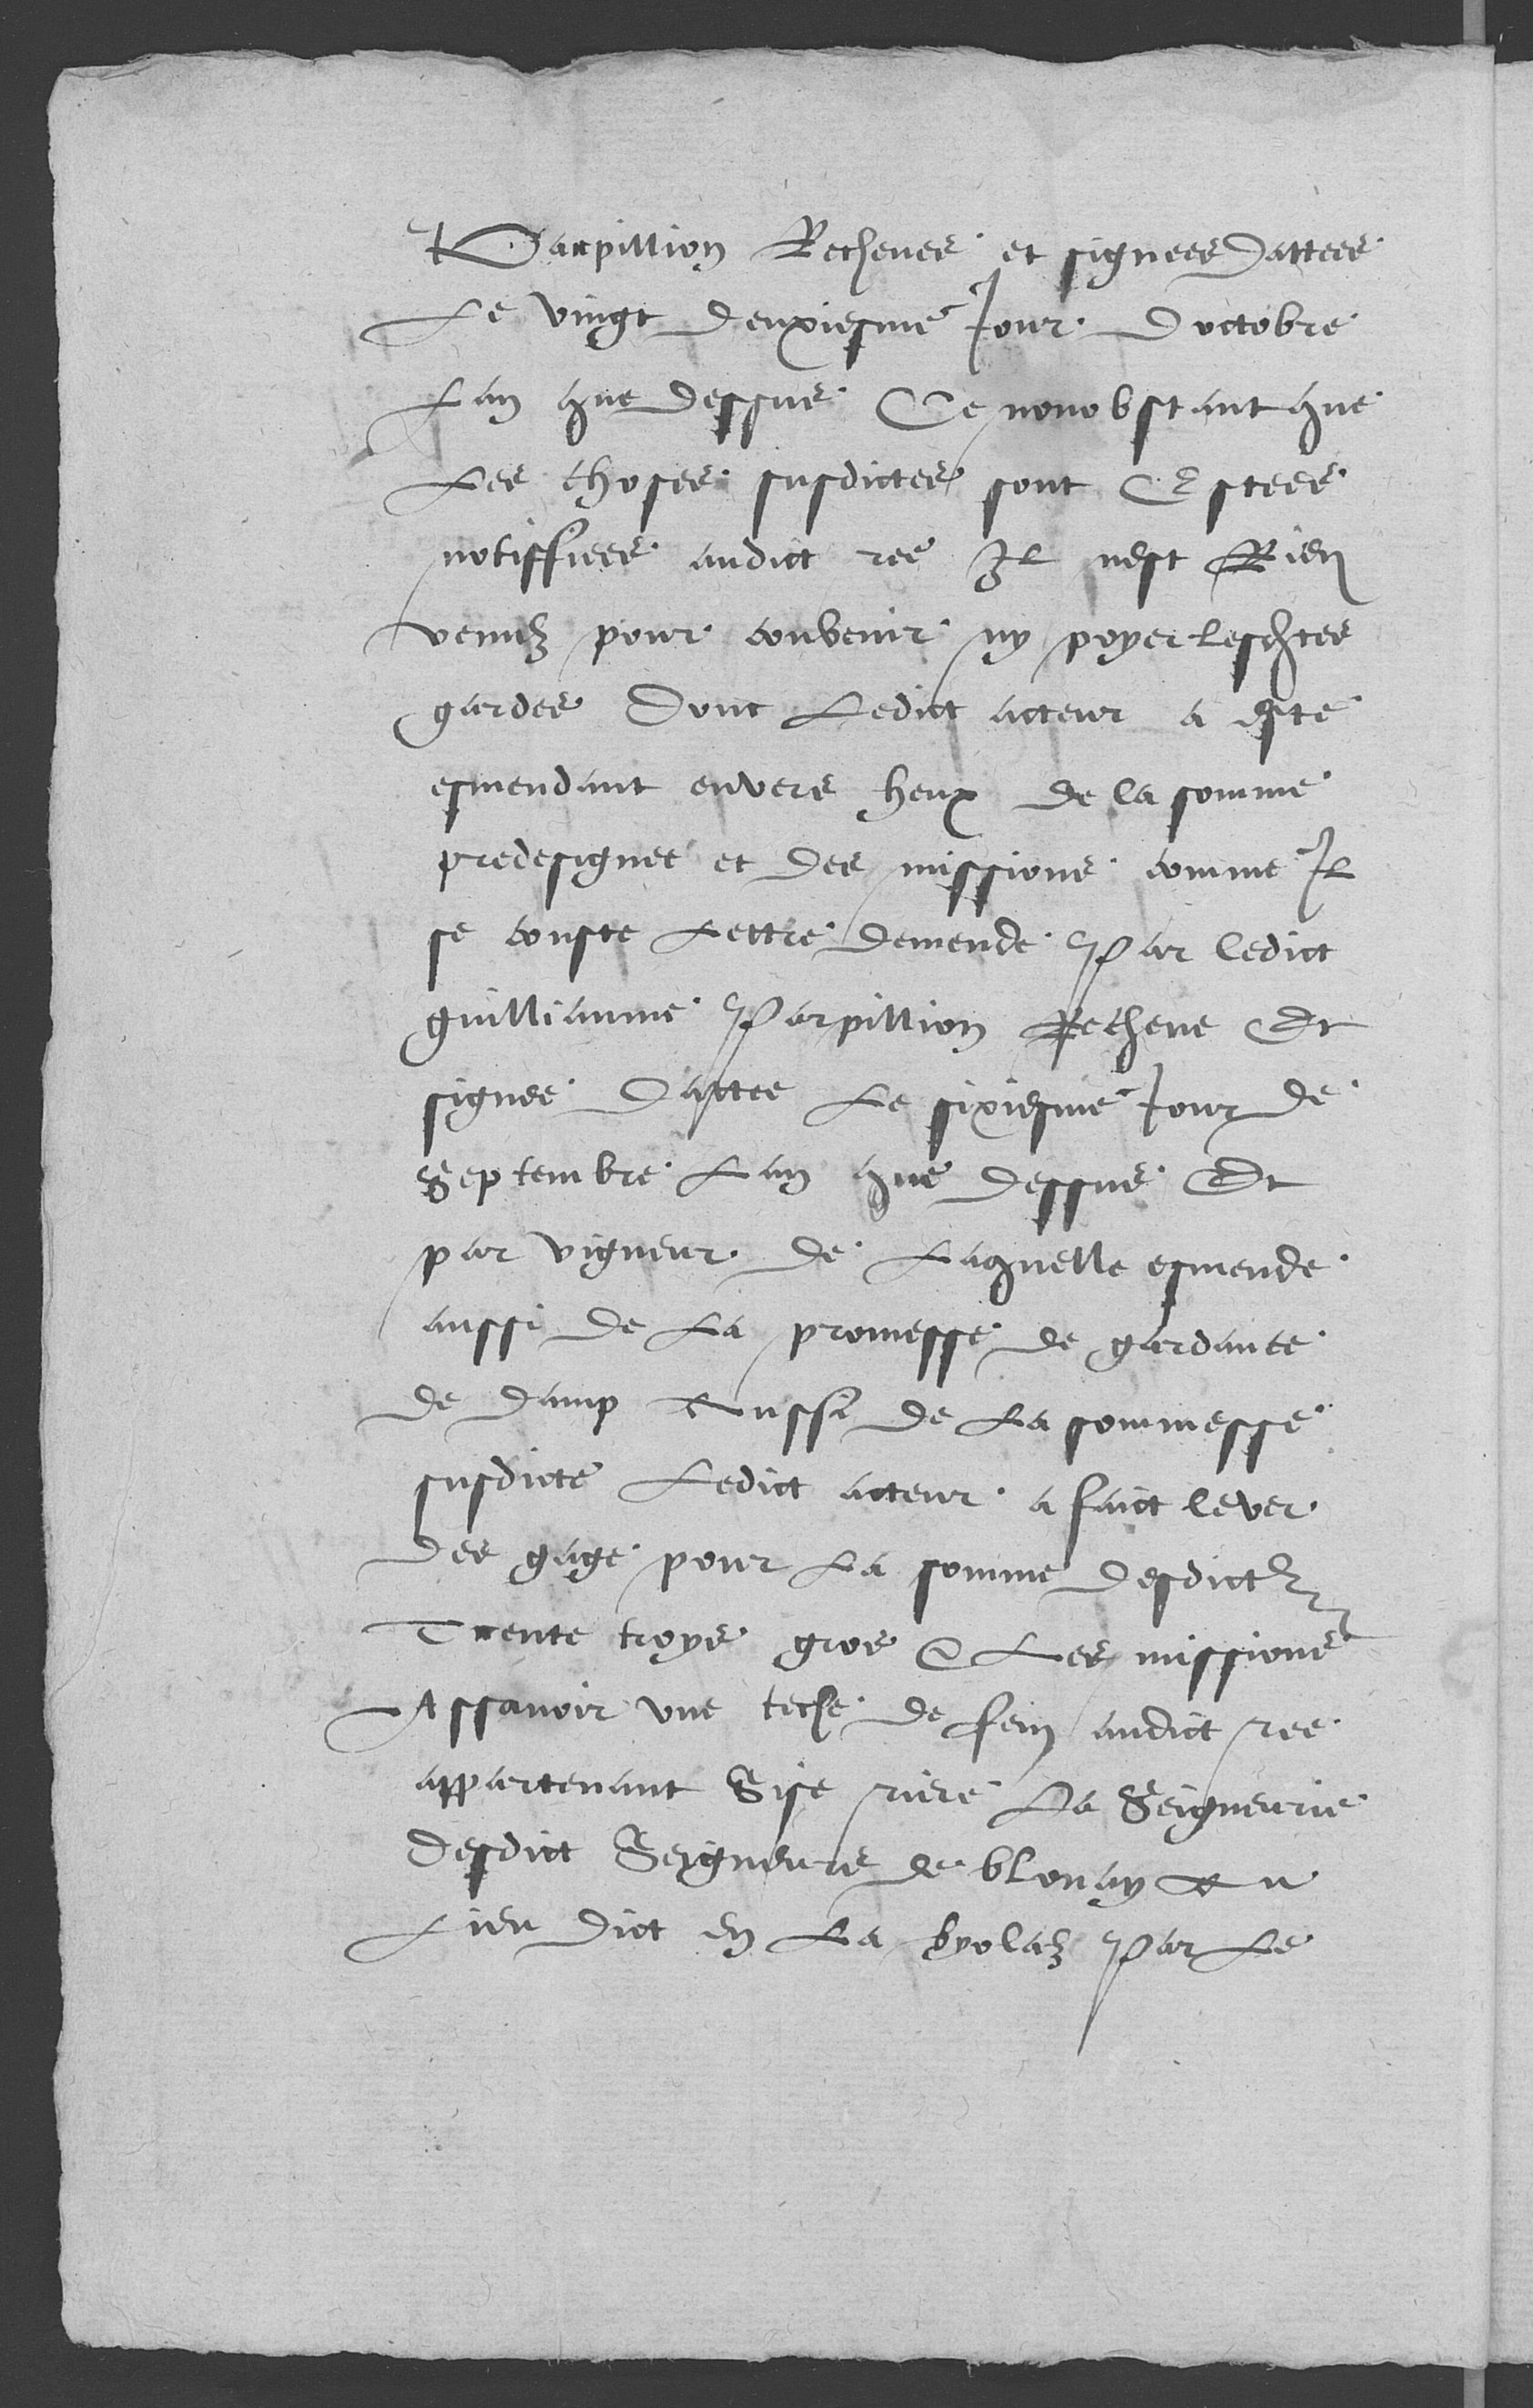 Parpillion Recheues et signees Dattees
Le vingt deuxiesme Jour Doctobre
Lan que dessus Ce nonobstant que
Les choses susdictes sont Estees
notiffiees audict ree Il nest Rien
venuz pour convenir ny poyer lesdictes
gardes Dont Ledict acteur a este
esmendant envers heux de la somme
predesignee et des missions comme Il
se conste Lettre demende Par ledict
guilliaume Parpillion Recheue Et
signee Dattee Le sixiesme Jour de
Septembre Lan que dessus Et
par vigneur de Laquelle esmende
aussi de La promesse de gardance
de damp Aussi de La sommesse
susdicte Ledict acteur a faict lever
des gage pour La somme desdictz
Trente troys gros & Les missions
Assavoir une teche de fein audict ree
appartenant Sise riere La Seigneurie
desdict Seigneurs de blonay Au
Lieu dict en La byolaz Par Le